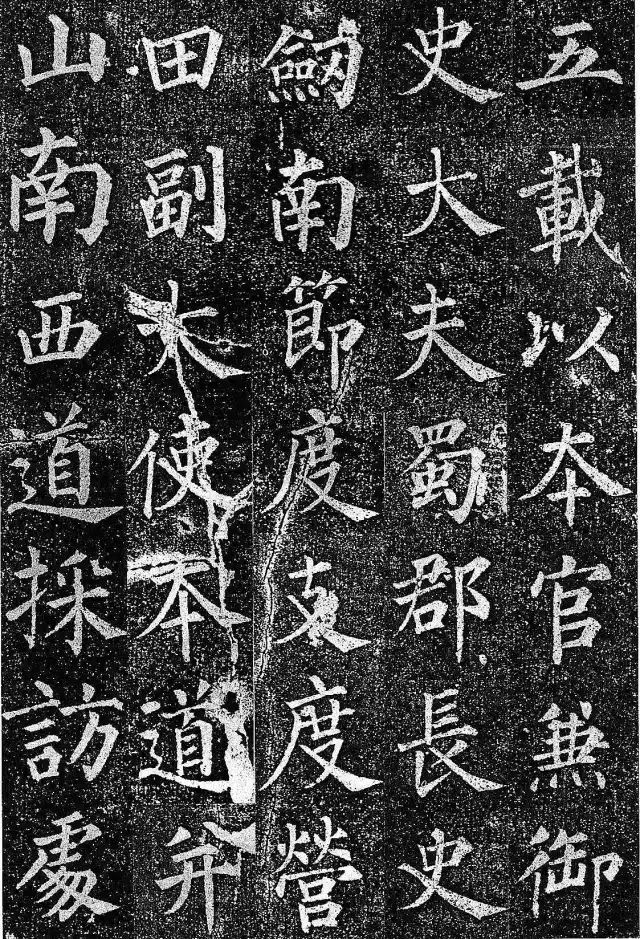 五載以本官兼御
史大夫蜀郡長史
劔南節度支度營
田副大使本道并
山南西道採訪處